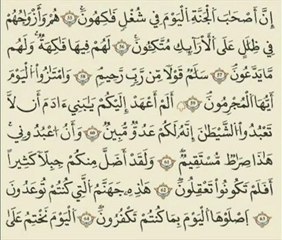 إِنَّ أَصْحَٰبَ ٱلْجَنَّةِ ٱلْيَوْمَ فِى شُغُلٍ فَٰكِهُونَ ۝٥٥ هُمْ وَأَزْوَٰجُهُمْ
فِى ظِلَٰلٍ عَلَى ٱلْأَرَآئِكِ مُتَّكِـُٔونَ ۝٥٦ لَهُمْ فِيهَا فَٰكِهَةٌ وَلَهُم
مَّا يَدَّعُونَ ۝٥٧ سَلَٰمٌ قَوْلًا مِّن رَّبٍّ رَّحِيمٍ ۝٥٨ وَٱمْتَٰزُوا۟ ٱلْيَوْمَ
أَيُّهَا ٱلْمُجْرِمُونَ ۝٥٩ أَلَمْ أَعْهَدْ إِلَيْكُمْ يَٰبَنِىٓ ءَادَمَ أَن لَّا
تَعْبُدُوا۟ ٱلشَّيْطَٰنَ إِنَّهُۥ لَكُمْ عَدُوٌّ مُّبِينٌ ۝٦٠ وَأَنِ ٱعْبُدُونِى
هَٰذَا صِرَٰطٌ مُّسْتَقِيمٌ ۝٦١ وَلَقَدْ أَضَلَّ مِنكُمْ جِبِلًّا كَثِيرًا
أَفَلَمْ تَكُونُوا۟ تَعْقِلُونَ ۝٦٢ هَٰذِهِۦ جَهَنَّمُ ٱلَّتِى كُنتُمْ تُوعَدُونَ
۝٦٣ ٱصْلَوْهَا ٱلْيَوْمَ بِمَا كُنتُمْ تَكْفُرُونَ ۝٦٤ ٱلْيَوْمَ نَخْتِمُ عَلَىٰٓ